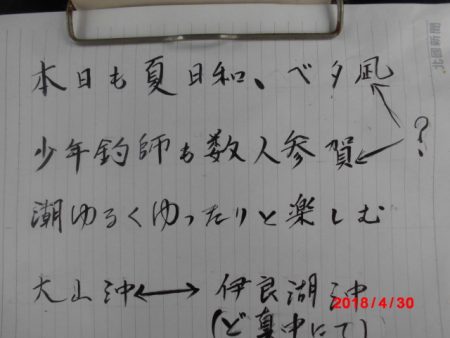 本日も夏日和、ベタ凪
少年釣師も数人参賀
?
潮ゆるくゆったりと楽しむ
大山沖↔伊良湖沖
(ど真中にて)
2018/4/30